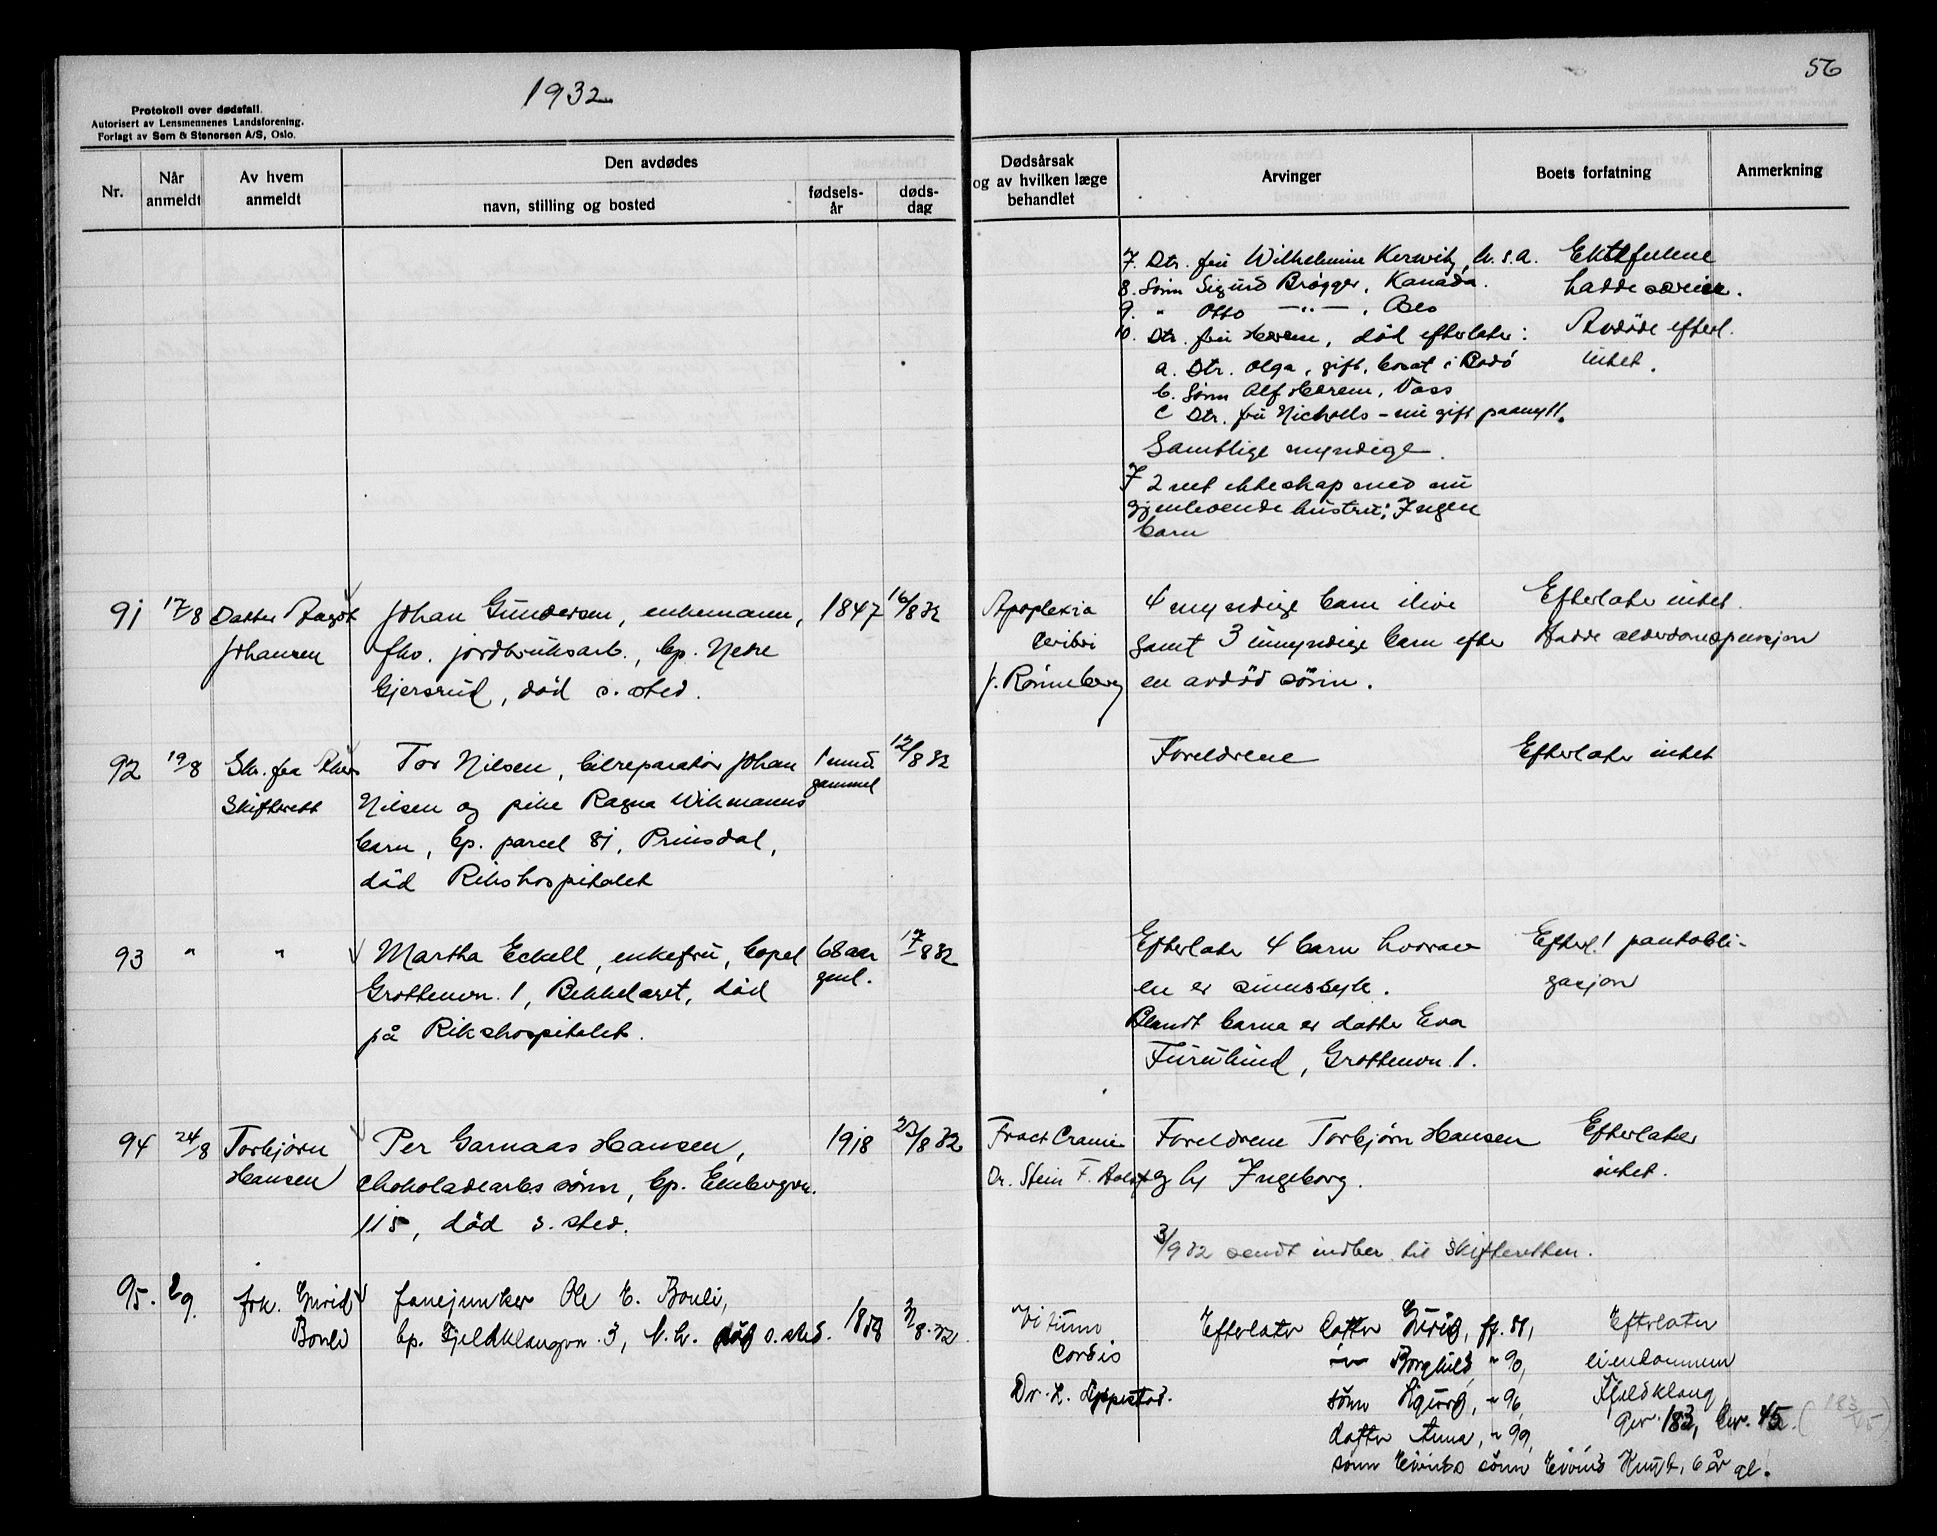 1932
56
Protokoll over dødsfall.
Autorisert av Lensmennenes Landsforening.
Forlagt av Sem & Stenersen A/S, Oslo.
Nr.
Når anmeldt
Av hvem anmeldt
Den avdødes
navn, stilling og bosted
fødsels-år
døds-dag
Dødsårsak og av hvilken læge behandlet
Arvinger
Boets forfatning
Anmerkning
7. Dtr. fru Wilhelmine U.S.A.
8. Sønn Sigurd Brøgger, Kanada.
9. " Otto —"—, Oslo
10. Dtr. fru Hærem, død efterlater:
a. Dtr. Olga, gift, bosat i Bodø
b. Sønn Alf Hærem, Voss
c Dtr. fru Nicholls - nu gift paanytt.
Samtlige myndige.
I 2net ekteskap med nu
gjenlevende hustru: Ingen
barn
Ektefellene
hadde særeie.
Avdøde efterl.
intet.
91
17/8
Datter Aagot
Johansen
Johan Gundersen, enkemann,
fhv. jordbruksarb., bp. Nedre
Gjersrud, død s. sted.
1847
16/8 32
Apoplexia
ceribri
J. Rønneberg
4 myndige barn ilive
samt 3 umyndige barn efter
en avdød sønn.
Efterlater intet.
Hadde alderdomspensjon
92
19/8
Skr. fra Akers
Skifterett
Tor Nilsen, bilreparatør Johan
Nilsen og pike Ragna Wikmanns
barn, bp. parcel 81, Prinsdal,
død Rikshospitalet
1 mnd
gammel
12/8 32
Foreldrene
Efterlater intet
93
"
"
Martha Eckell, enkefru, bopel
Grottenvn. 1, Bekkelaget, død
på Rikshospitalet.
68 aar
gml.
17/8 32
Efterlater 4 barn hvorav
en er sinnssyk.
Blandt barna er datter Eva
Furulund, Grottenvn. 1.
Efterl. 1 pantobli-
gasjon
94
24/8
Torbjørn
Hansen
Per Garnaas Hansen,
chokoladearbs sønn, bp. Ekebergvn.
115, død s. sted.
1918
23/8 32
Fract Cranie
Dr. Stein
Foreldrene Torbjørn Hansen
og h Ingeborg.
3/9 32 sendt indber. til Skifteretten.
Efterlater
intet.
95.
2/9.
frk. Gurid
Bonli
fanejunker Ole E. Bonli,
bp. Fjeldklangvn. 3, N.h. død s. sted.
Vitium
Cordis
Dr. L. Lippestad.
Efterlater datter Gurid, ff. 88,
Borghild, " 90,
sønn Sigurd, " 96,
datter Anna, " 99,
sønn Eivinds sønn Eivind Knut, 6 år gl.
Efterlater
eiendommen
Fjeldklang
Gnr. 183, bnr. 45. (183/45)